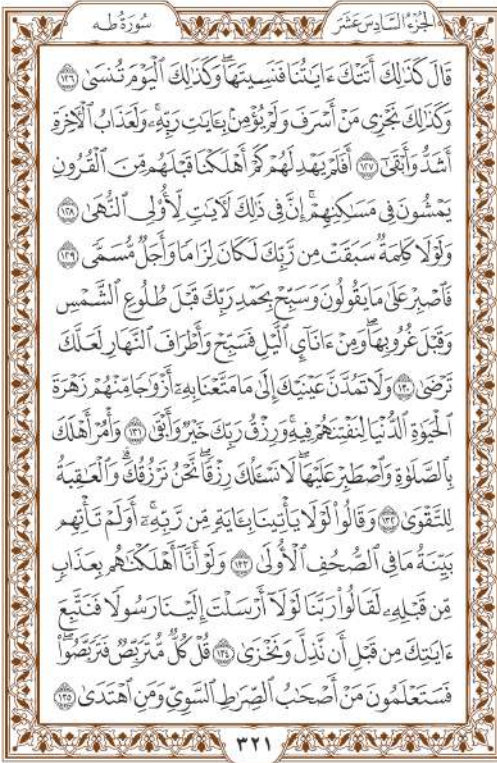 الجُزْءُ السَّادِسَ عَشَرَ
سُورَةُ طه
قَالَ كَذَٰلِكَ أَتَتْكَ ءَايَٰتُنَا فَنَسِيتَهَاۖ وَكَذَٰلِكَ ٱلْيَوْمَ تُنسَىٰ ١٢٦
وَكَذَٰلِكَ نَجْزِى مَنْ أَسْرَفَ وَلَمْ يُؤْمِنۢ بِـَٔايَٰتِ رَبِّهِۦۚ وَلَعَذَابُ ٱلْءَاخِرَةِ
أَشَدُّ وَأَبْقَىٰٓ ١٢٧ أَفَلَمْ يَهْدِ لَهُمْ كَمْ أَهْلَكْنَا قَبْلَهُم مِّنَ ٱلْقُرُونِ
يَمْشُونَ فِى مَسَٰكِنِهِمْۗ إِنَّ فِى ذَٰلِكَ لَءَايَٰتٍ لِّأُو۟لِى ٱلنُّهَىٰ ١٢٨
وَلَوْلَا كَلِمَةٌ سَبَقَتْ مِن رَّبِّكَ لَكَانَ لِزَامًا وَأَجَلٌ مُّسَمًّى ١٢٩
فَٱصْبِرْ عَلَىٰ مَا يَقُولُونَ وَسَبِّحْ بِحَمْدِ رَبِّكَ قَبْلَ طُلُوعِ ٱلشَّمْسِ
وَقَبْلَ غُرُوبِهَاۖ وَمِنْ ءَانَآئِ ٱلَّيْلِ فَسَبِّحْ وَأَطْرَافَ ٱلنَّهَارِ لَعَلَّكَ
تَرْضَىٰ ١٣٠ وَلَا تَمُدَّنَّ عَيْنَيْكَ إِلَىٰ مَا مَتَّعْنَا بِهِۦٓ أَزْوَٰجًا مِّنْهُمْ زَهْرَةَ
ٱلْحَيَوٰةِ ٱلدُّنْيَا لِنَفْتِنَهُمْ فِيهِۚ وَرِزْقُ رَبِّكَ خَيْرٌ وَأَبْقَىٰ ١٣١ وَأْمُرْ أَهْلَكَ
بِٱلصَّلَوٰةِ وَٱصْطَبِرْ عَلَيْهَاۖ لَا نَسْـَٔلُكَ رِزْقًاۖ نَّحْنُ نَرْزُقُكَۗ وَٱلْعَٰقِبَةُ
لِلتَّقْوَىٰ ١٣٢ وَقَالُوا۟ لَوْلَا يَأْتِينَا بِـَٔايَةٍ مِّن رَّبِّهِۦٓۚ أَوَلَمْ تَأْتِهِم
بَيِّنَةُ مَا فِى ٱلصُّحُفِ ٱلْأُولَىٰ ١٣٣ وَلَوْ أَنَّآ أَهْلَكْنَٰهُم بِعَذَابٍ
مِّن قَبْلِهِۦ لَقَالُوا۟ رَبَّنَا لَوْلَآ أَرْسَلْتَ إِلَيْنَا رَسُولًا فَنَتَّبِعَ
ءَايَٰتِكَ مِن قَبْلِ أَن نَّذِلَّ وَنَخْزَىٰ ١٣٤ قُلْ كُلٌّ مُّتَرَبِّصٌ فَتَرَبَّصُوا۟ۖ
فَسَتَعْلَمُونَ مَنْ أَصْحَٰبُ ٱلصِّرَٰطِ ٱلسَّوِىِّ وَمَنِ ٱهْتَدَىٰ ١٣٥
٣٢١